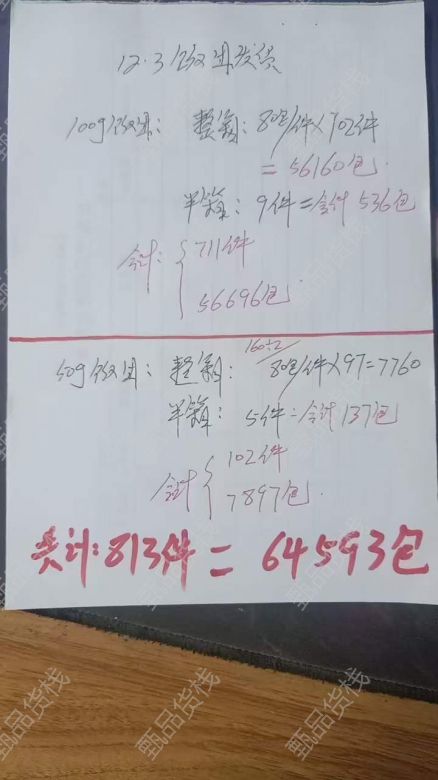 12.3饭团发货
100g饭团：整箱：80包/件×702件
=56160包.
半箱：9件=合计536包
合计：{711件
56696包.
160÷2
50g饭团：整箱：80包/件×97=7760
半箱：5件=合计137包
合计{102件
7897包.
共计：813件=64593包
甄品货栈